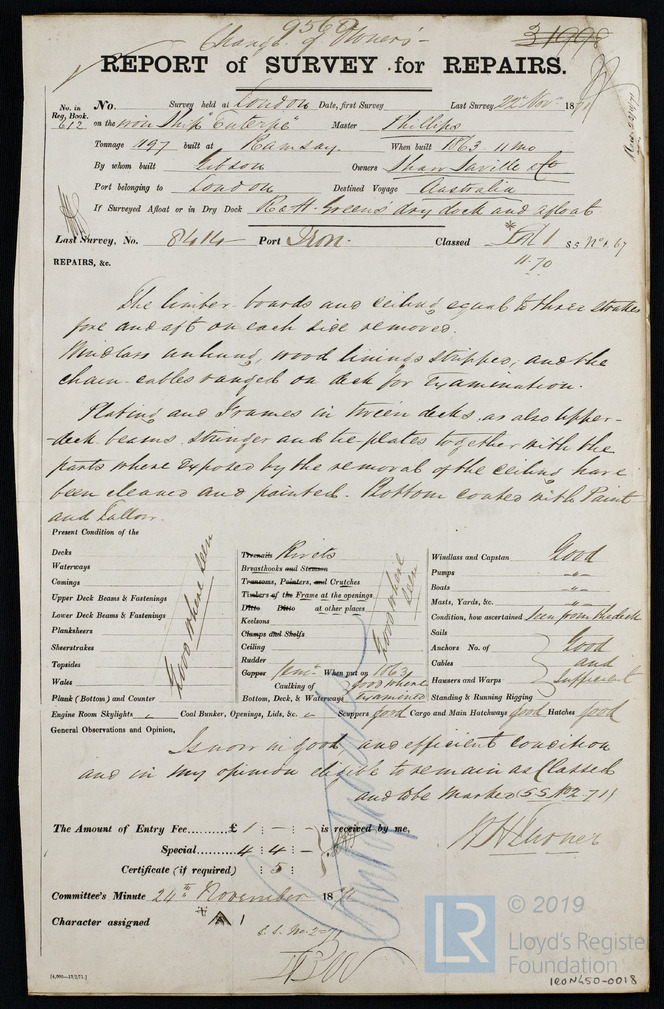 9560
Change of Owners -
31998
REPORT of SURVEY for REPAIRS.
No. in Reg. Book. 612
No. Survey held at London Date, first Survey Last Survey 22nd Nov 1871
on the iron Ship "Euterpe" Master Phillips
Tonnage 1197 built at Ramsay. When built 1863 11 mo
By whom built Gibson Owners Shaw Saville & Co
Port belonging to London Destined Voyage Australia
If Surveyed Afloat or in Dry Dock R & H. Greens dry dock and afloat
Last Survey, No. 8414 Port Iron. Classed
11.70
REPAIRS, &c.
The limber-boards and ceiling equal to three strakes
fore and aft on each side removed.
Windlass unhung, wood linings stripped, and the
chain-cables ranged on deck for Examination.
Plating and Frames in tween decks as also upper-
-deck beams stringer and tie-plates together with the
parts where exposed by the removal of the ceiling have
been cleaned and painted. Bottom coated with Paint
and Tallow.
Present Condition of the
Decks
Waterways
Comings
Upper Deck Beams & Fastenings
Lower Deck Beams & Fastenings
Planksheers
Sheerstrakes
Topsides
Wales
Plank (Bottom) and Counter
Good where seen
Treenails Rivets
Breasthooks and Stemson
Transoms, Pointers, and Crutches
Timbers of the Frame at the openings
Ditto Ditto at other places
Keelsons
Clamps and Shelfs
Ceiling
Rudder
Good where seen
Copper Cemt. When put on 1863
Caulking of Bottom, Deck, & Waterways Good where examined
Windlass and Capstan Good
Pumps "
Boats "
Masts, Yards, &c. "
Condition, how ascertained Seen from the deck
Sails
Anchors No. of Good
Cables and
Hausers and Warps Sufficient
Standing & Running Rigging
Engine Room Skylights Coal Bunker, Openings, Lids, &c. Scuppers good Cargo and Main Hatchways good Hatches good
General Observations and Opinion,
Is now in good and efficient condition
and in my opinion eligible to remain as Classed
and to be marked (S.S. No 2-71)
The Amount of Entry Fee........£ 1 : - : - is received by me,
Special......... 4 : 4 : -
Certificate (if required) : 5 :
Committee's Minute 24th November 1871
Character assigned A 1
S.S. No 2-71
[4,000—13/2/71.]
LR
© 2019
Lloyd's Register
Foundation
IRON450-0018